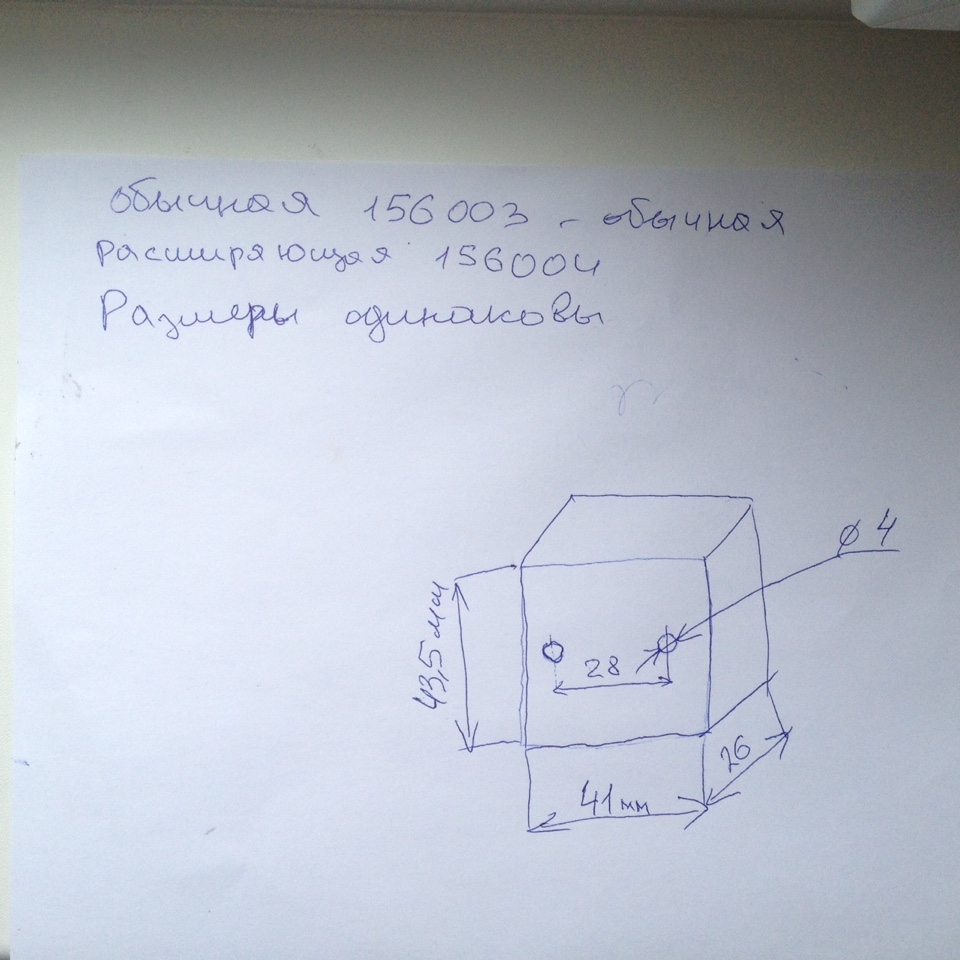 обычная 156003 - обычная
расширяющая 156004
Размеры одинаковы
ø 4
43,5 мм
28
26
41 мм